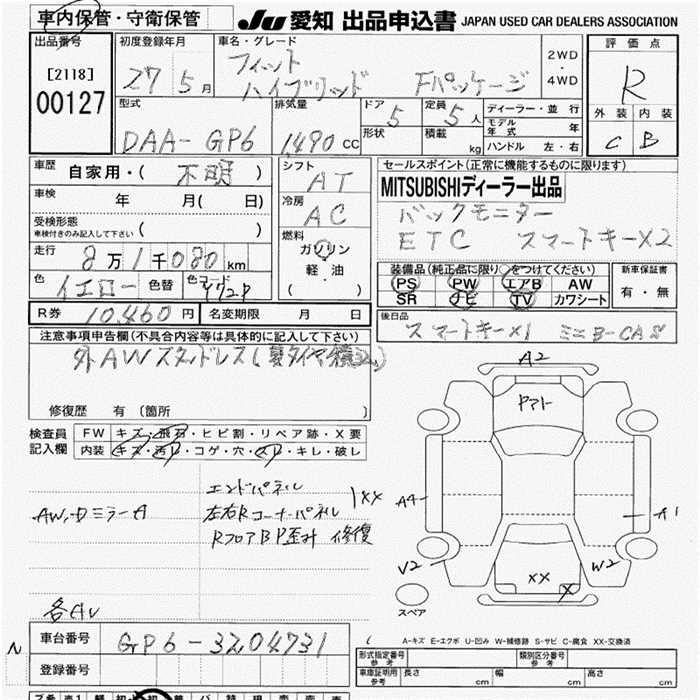 車内保管・守衛保管
JU 愛知 出品申込書 JAPAN USED CAR DEALERS ASSOCIATION
出品番号
[2118]
00127
初度登録年月
27 5 月
車名・グレード
フィット
ハイブリッド Fパッケージ
2WD
・
4WD
評価点
R
外装 内装
C B
型式
DAA-GP6
排気量
1,490 CC
ドア
5
定員
5 人
形状
積載
kg
ディーラー・並行
モデル年式 年
ハンドル 左・右
車歴
自家用・( 不明 )
車検
年 月( 日)
受検形態
車検付きのみ記入して下さい ( )
走行
8 万 1 千 080 km
色
イエロー 色替 色コード
シフト
AT
冷房
AC
燃料
ガソリン
軽・油
( )
セールスポイント(正常に機能するものに限ります)
MITSUBISHIディーラー出品
バックモニター
ETC スマートキーX2
装備品(純正品に限り○をつけてください)
PS PW エアB AW
SR ナビ TV カワシート
新車保証書
有・無
R券 10,460 円 名変期限 月 日
後日品
スマートキーX1 ミニB-CAS
注意事項申告欄(不具合内容等は具体的に記入して下さい)
外AWスタッドレス(夏タイヤ積込)
修復歴 有 〔箇所 〕
検査員記入欄
FW キズ・飛石・ヒビ割・リペア跡・X要
内装 キズ・汚れ・コゲ・穴・スレ・キレ・破レ
エンドパネル
AW,Dミラー A 左右Rコーナーパネル 1XX
RフロアBP歪み 修復
A2
ヤマト
A4
A1
V2
W2
XX
X
スペア
N
車台番号 GP6-3204731
登録番号
A-キズ E-エクボ U-凹み W-補修跡 S-サビ C-腐食 XX-交換済
形式指定番号 参考
類別区分番号 参考
車庫証明用 参考 長さ cm 幅 cm 高さ cm